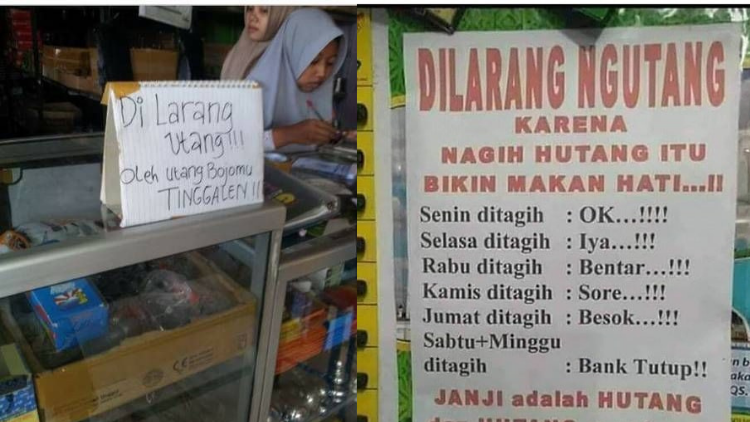 Di Larang
Utang!!!
Oleh utang Bojomu
TINGGALEN!!
DILARANG NGUTANG
KARENA
NAGIH HUTANG ITU
BIKIN MAKAN HATI...!!
Senin ditagih : OK...!!!!
Selasa ditagih : Iya...!!!
Rabu ditagih : Bentar...!!!
Kamis ditagih : Sore...!!!
Jumat ditagih : Besok...!!!
Sabtu+Minggu
ditagih : Bank Tutup!!
JANJI adalah HUTANG
QS.